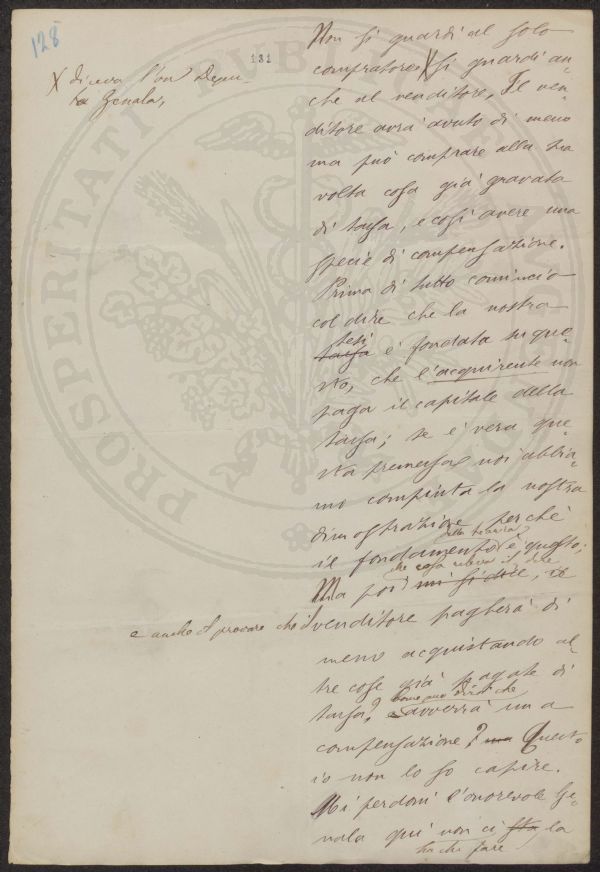 128
131
X diceva l'on Depu
ta Genala,
Non si guardi al solo
compratore X si guardi an-
che al venditore, Il ven-
ditore avrà avuto di meno
ma può comprare alla sua
volta cosa già gravata
di tassa, e così avere una
specie di compensazione.
Prima di tutto comincio
col dire che la nostra
tesi
tassa è fondata su que-
sto, che l'acquirente non
paga il capitale della
tassa; se è vera que-
sta premessa noi abbia-
mo compiuta la nostra
dimostrazione perchè
della teoria
il fondamento è questo;
che cosa rileva il dire
Ma poi mi si dice, il
e anche il provare che il venditore pagherà di
meno acquistando al-
tre cose già pagate di
come può dirsi che
tassa? e avverrà una
compensazione? ma Questo
io non lo so capire.
Mi perdoni l'onorevole Ge-
nala qui non ci sta la
ha che fare
PROSPERITATI PUB